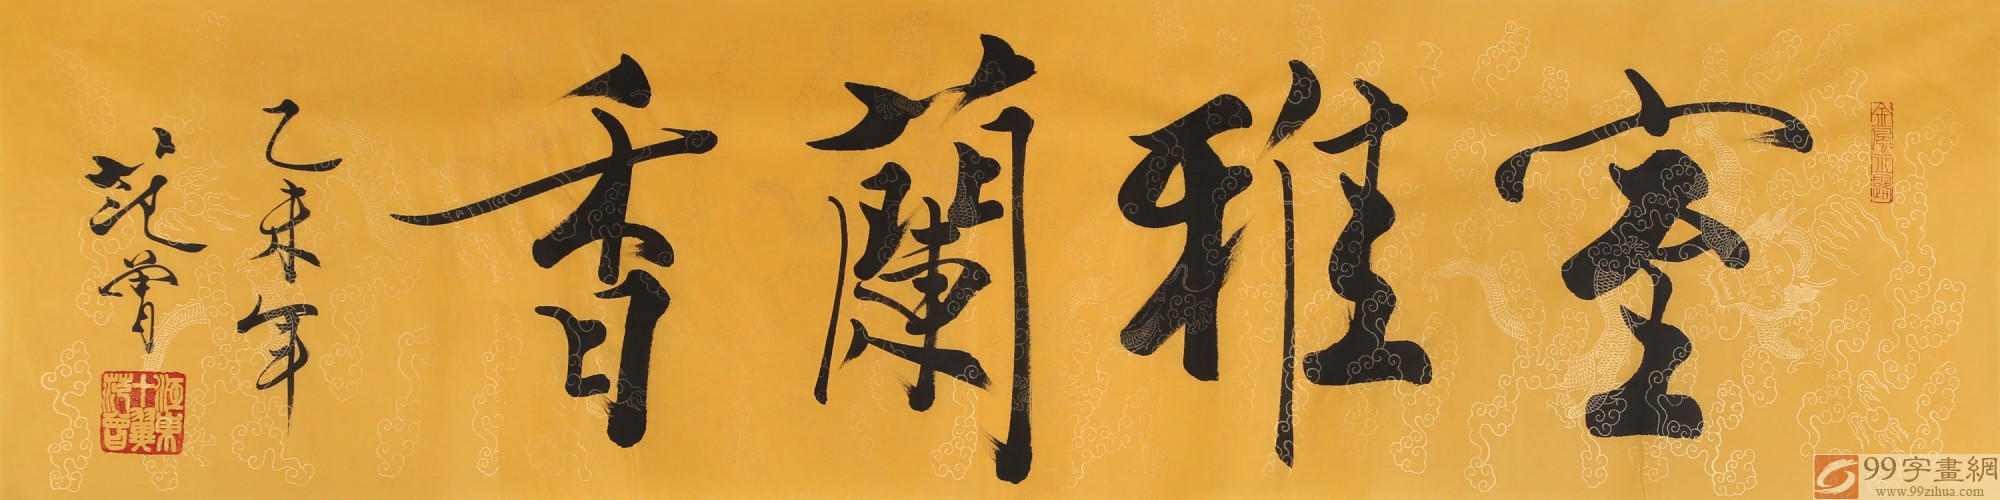 室雅蘭香
乙未年
范曾
江東十翼范曾
99字畫網
www.99zihua.com